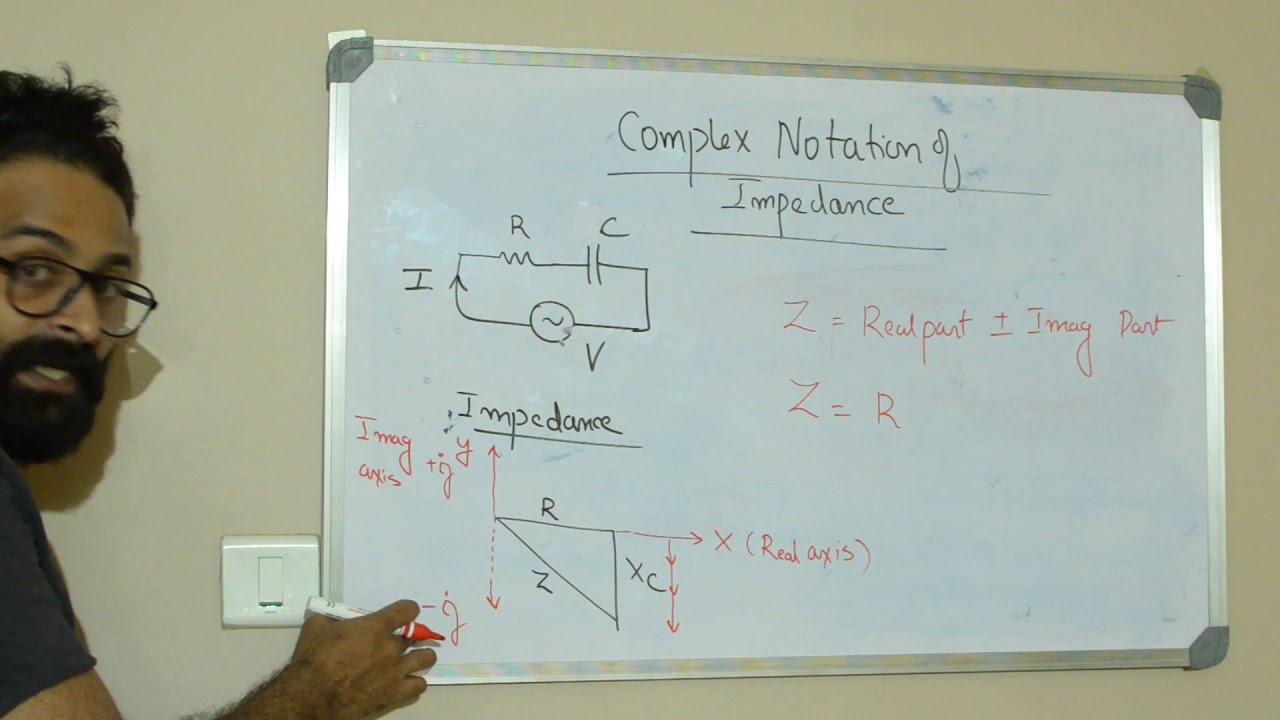 Complex Notation of
Impedance
R C
I
V
Z = Real part ± Imag Part
Z = R
Impedance
Imag axis
y
+j
R
X (Real axis)
Z
XC
-j